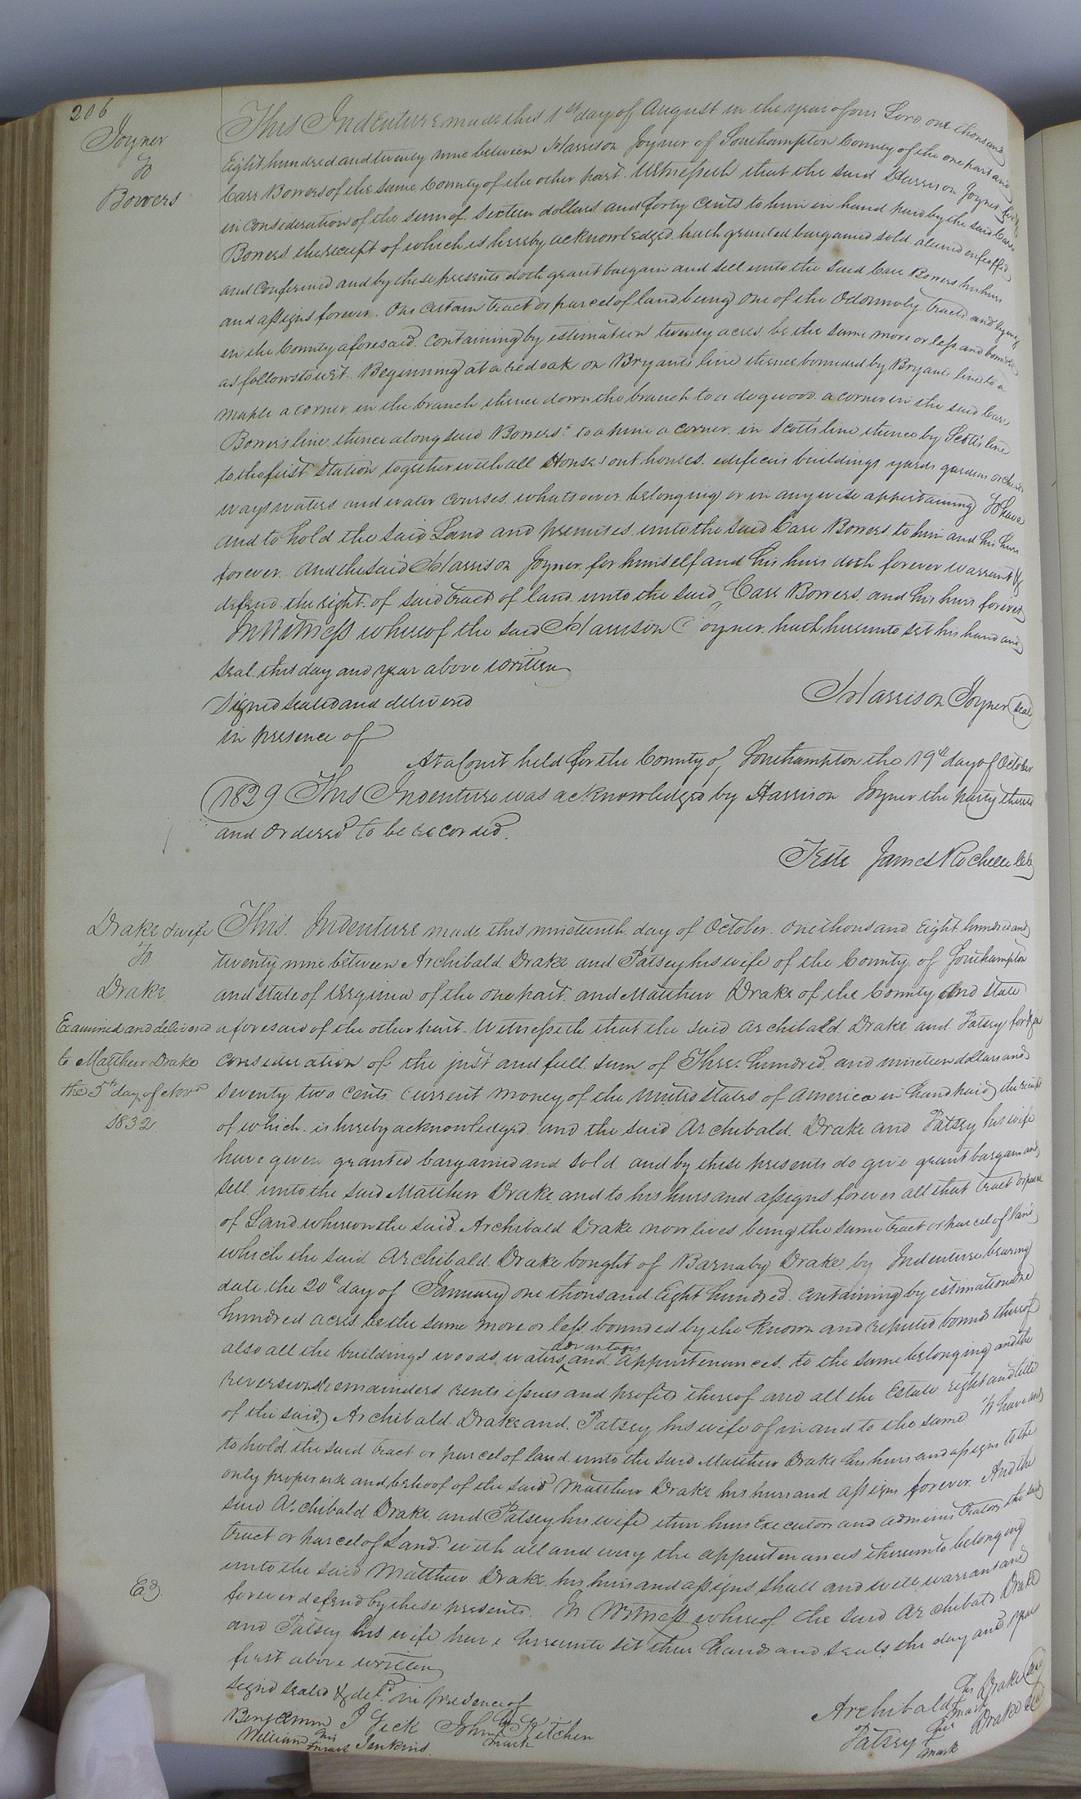 206
Joyner
To
Bowers
This Indenture made this 1st day of August in the year of our Lord one thousand
Eight hundred and twenty nine between Harrison Joyner of Southampton County of the one part and
Carr Bowers of the same County of the other part. Witnesseth that the said Harrison Joyner for &
in consideration of the sum of Sixteen dollars and forty cents to him in hand paid by the said Carr
Bowers the receipt of which is hereby acknowledged hath granted bargained sold aliened enfeoffed
and confirmed and by these presents doth grant bargain and sell unto the said Carr Bowers his heirs
and assigns forever. One certain tract or parcel of land being one of the tracts and lying
in the County aforesaid. Containing by estimation twenty acres be the same more or less and bounded
as follows to wit. Beginning at a red oak on Bryants line thence bounded by Bryants line to a
maple a corner in the branch thence down the branch to a dogwood a corner in the said Carr
Bowers line thence along said Bowers to a pine a corner in Scotts line thence by Scotts line
to the first station together with all Houses out houses. edifices buildings yards gardens orchards
ways waters and water courses whatsoever belonging or in any wise appertaining To have
and to hold the said Land and premises unto the said Carr Bowers to him and his heirs
forever. And the said Harrison Joyner for himself and his heirs doth forever warrant &
defend the right of said tract of land unto the said Carr Bowers. and his heirs forever
In Witness whereof the said Harrison Joyner hath hereunto set his hand and
seal this day and year above written
Signed sealed and delivered
Harrison Joyner seal
in presence of
At a Court held for the County of Southampton the 19th day of October
1829 This Indenture was acknowledged by Harrison Joyner the party thereto
and ordered to be recorded.
Teste James Rochelle Clk
Drake & wife
To
Drake
Examined and delivered
to Matthew Drake
the 5th day of Novr
1832
This Indenture made this nineteenth day of October. one thousand Eight hundred and
twenty nine between Archibald Drake and Patsey his wife of the County of Southampton
and state of Virginia of the one part. and Matthew Drake of the County and state
aforesaid of the other part. Witnesseth that the said Archibald Drake and Patsey for & in
consideration of the just and full sum of Three hundred and nineteen dollars and
seventy two cents current money of the United States of America in hand paid the receipt
of which is hereby acknowledged. and the said Archibald Drake and Patsey his wife
have given granted bargained and sold and by these presents do give grant bargain and
sell unto the said Matthew Drake and to his heirs and assigns forever all that tract or parcel
of Land whereon the said Archibald Drake now lives being the same tract or parcel of land
which the said Archibald Drake bought of Barnaby Drake by Indenture bearing
date the 20th day of January one thousand Eight hundred. containing by estimation one
hundred acres be the same more or less bounded by the known and reputed bounds thereof
also all the buildings woods waters and appurtenances. to the same belonging and the
advantages
reversions remainders rents issues and profits thereof and all the Estate right and title
of the said Archibald Drake and Patsey his wife of in and to the same To have and
to hold the said tract or parcel of land unto the said Matthew Drake his heirs and assigns to the
only proper use and behoof of the said Matthew Drake his heirs and assigns forever. And the
said Archibald Drake and Patsey his wife their heirs Executors and administrators the said
tract or parcel of Land with all and every the appurtenances thereunto belonging
unto the said Matthew Drake, his heirs and assigns shall and will warrant and
forever defend by these presents. In Witness whereof the said Archibald Drake
E3
and Patsey his wife have hereunto set their hands and seals the day and year
first above written
Signd seald & deld in presence of
Benjamin J Geck John his mark Kitchen
William his mark Jenkins.
Archibald his mark Drake seal
Patsey her mark Drake seal